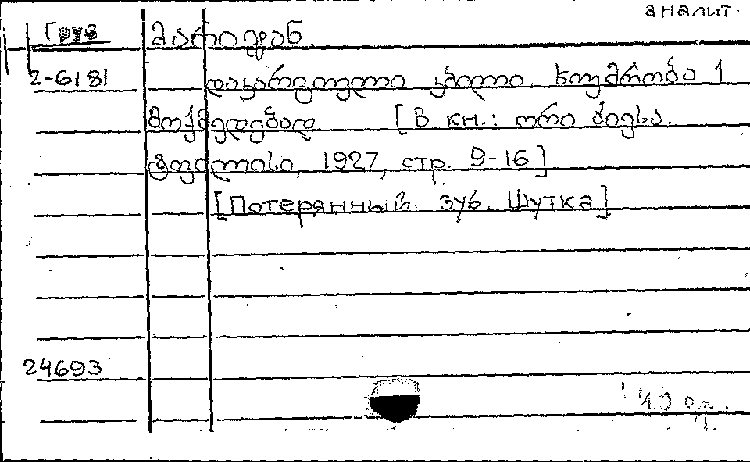 аналит.
Груз მარიჯან
2-6181 დაკარგული კბილი. ხუმრობა 1
მოქმედებად [В кн.: ორი პიესა.
ტფილისი, 1927, стр. 9-16]
[Потерянный зуб. Шутка]
24693